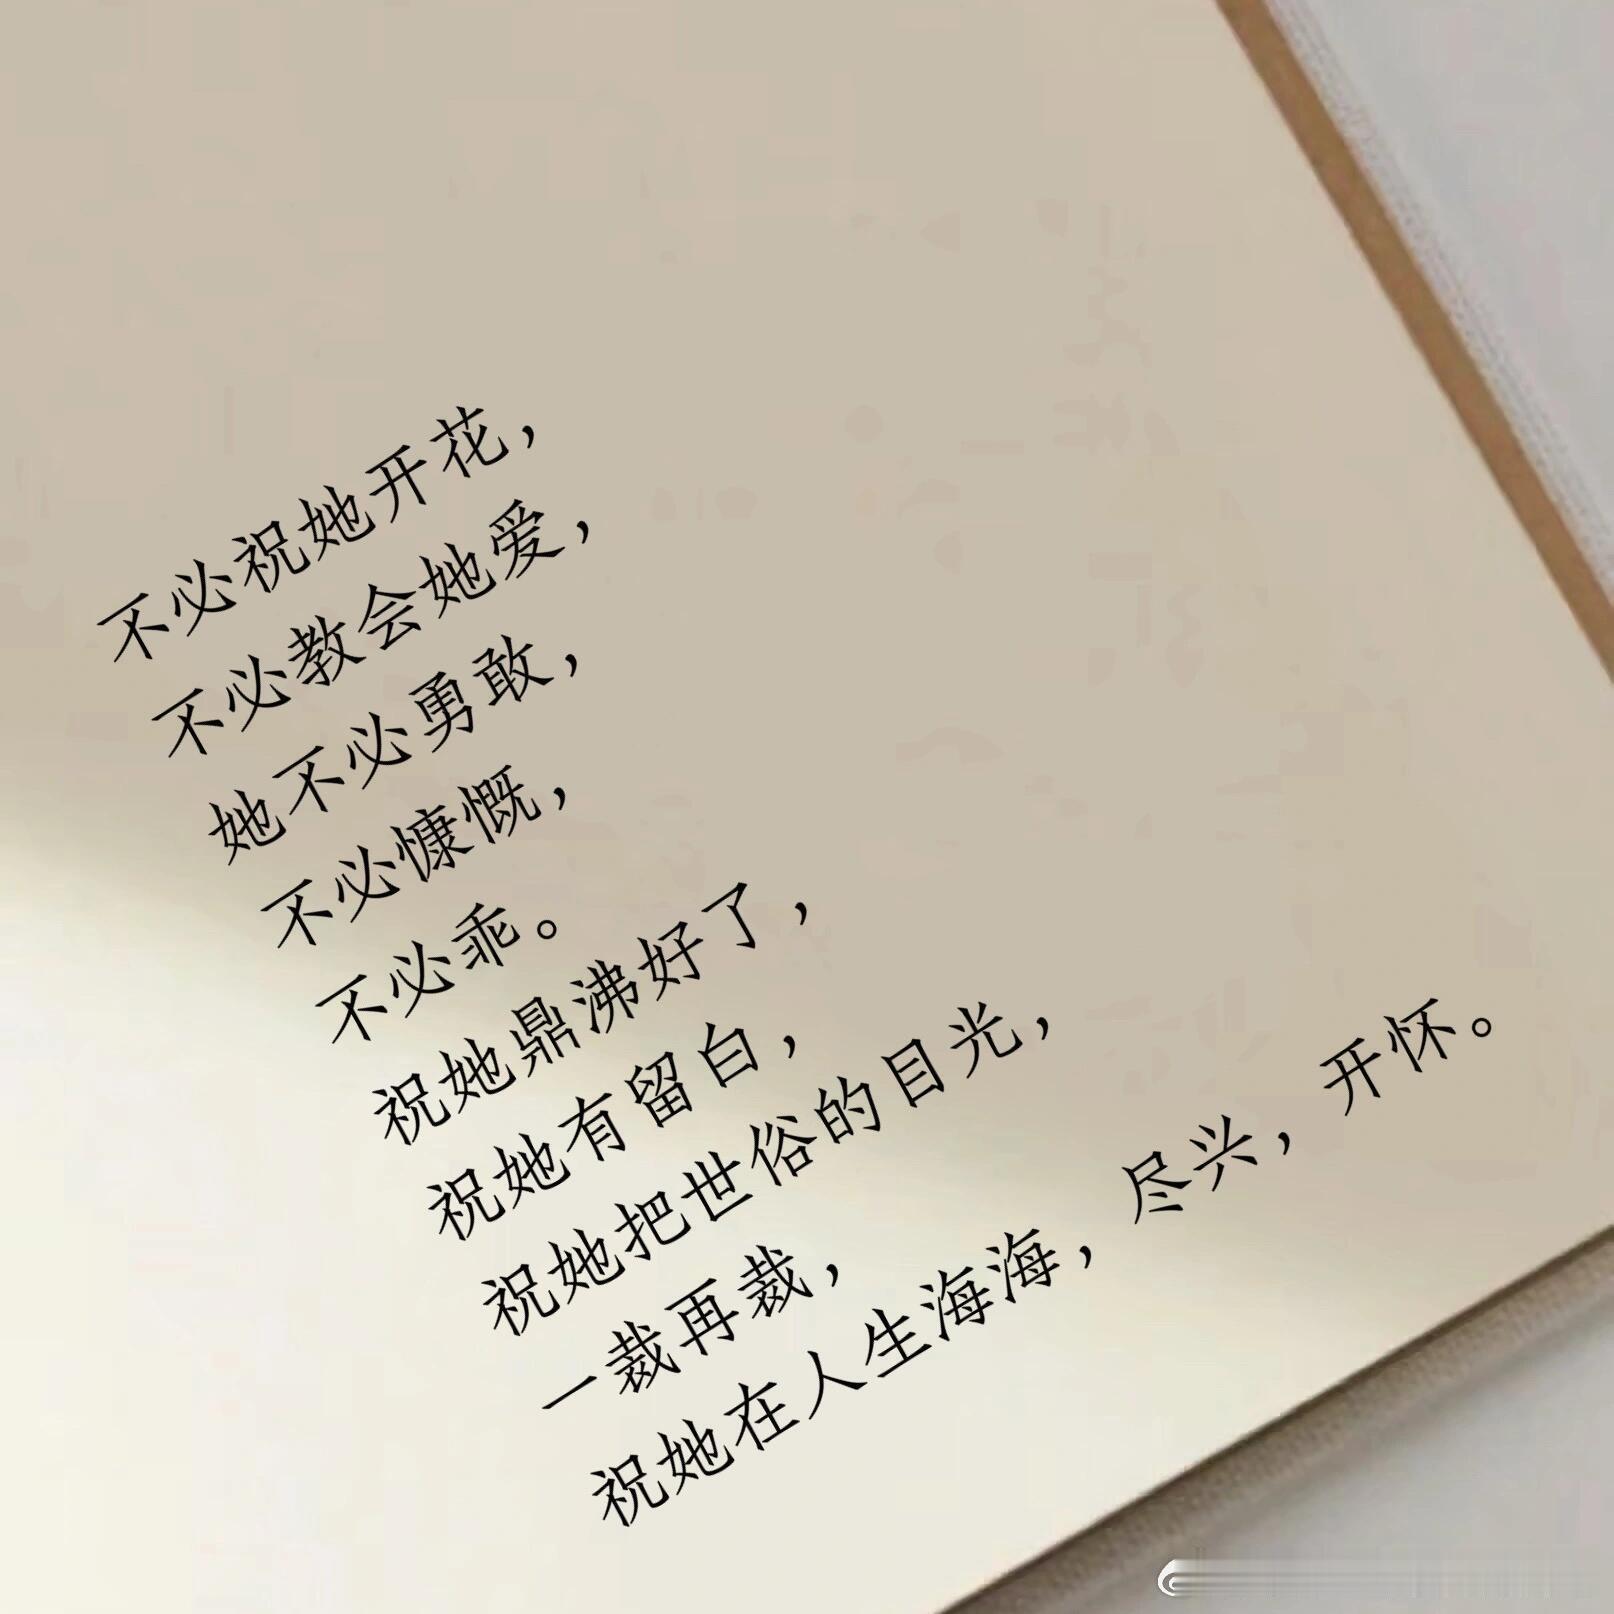 不必祝她开花，
不必教会她爱，
她不必勇敢，
不必慷慨，
不必乖。
祝她鼎沸好了，
祝她有留白，
祝她把世俗的目光，
一裁再裁，
祝她在人生海海，尽兴，开怀。